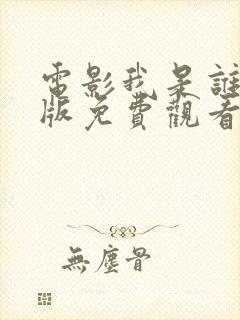 電影我是誰
版免費觀看
無塵骨